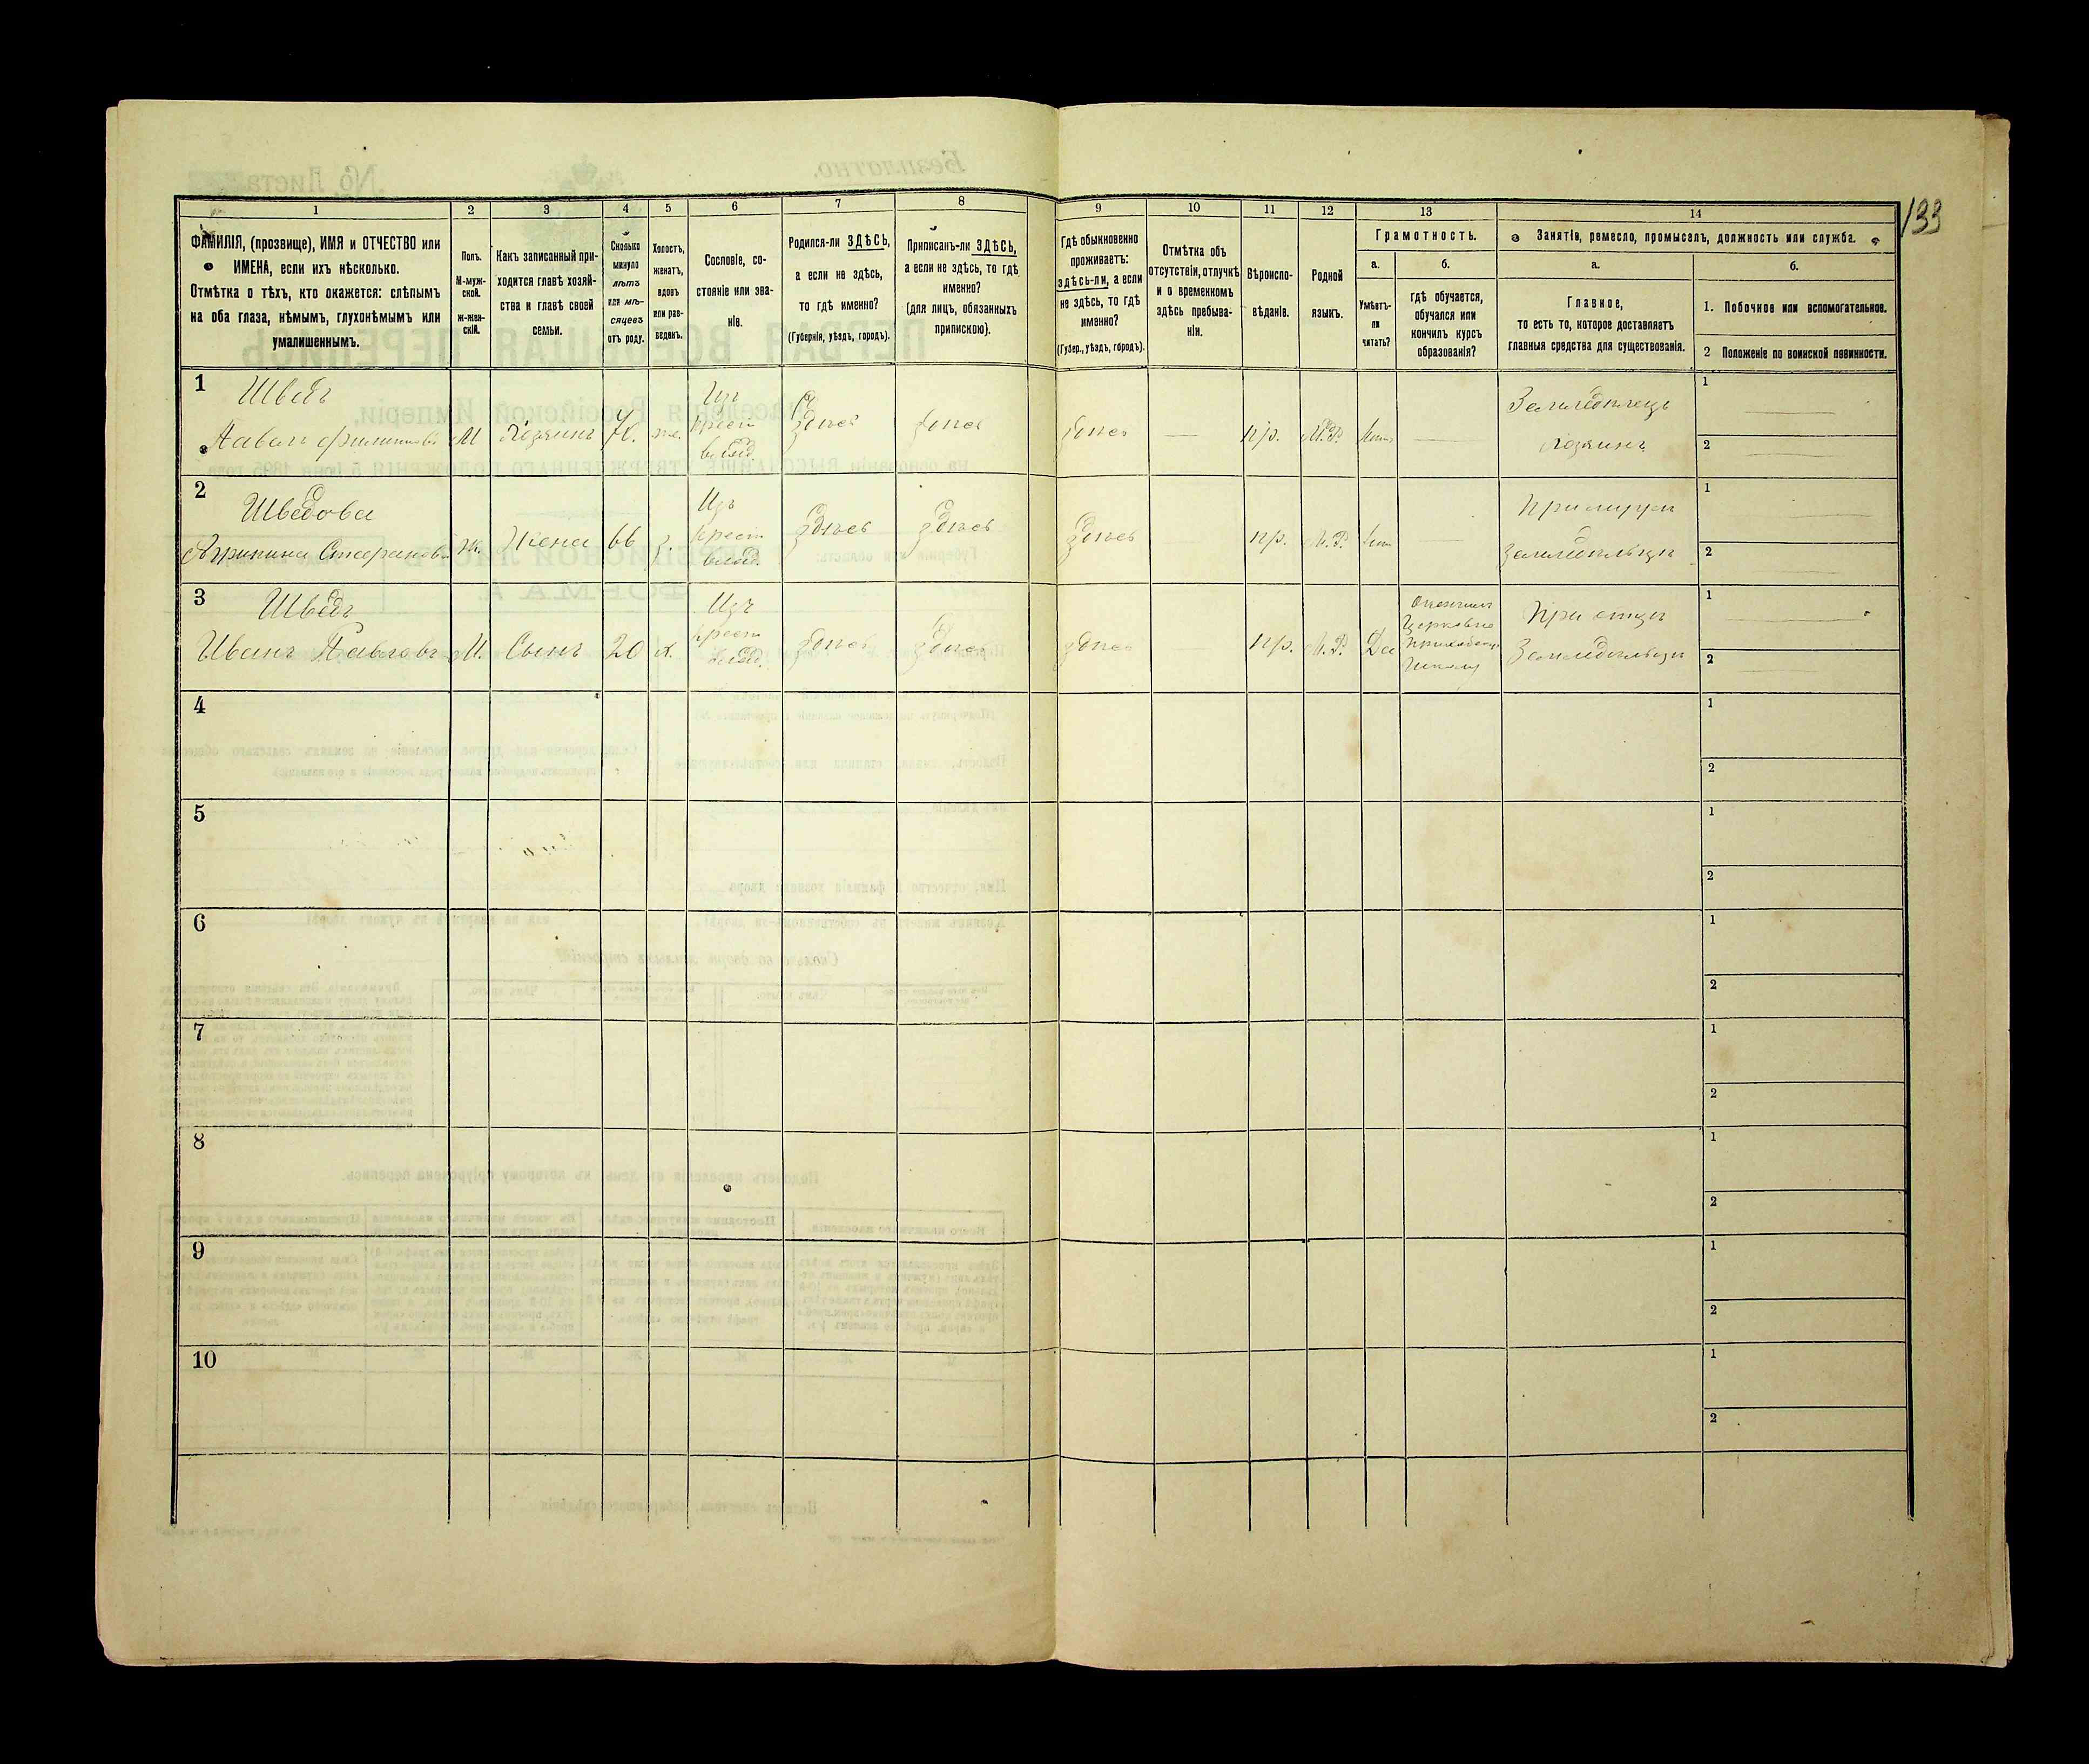 133
1
2
3
4
5
6
7
8
9
10
11
12
13
14
ФАМИЛІЯ, (прозвище), ИМЯ и ОТЧЕСТВО или
ИМЕНА, если ихъ нѣсколько.
Отмѣтка о тѣхъ, кто окажется: слѣпымъ
на оба глаза, нѣмымъ, глухонѣмымъ или
умалишеннымъ.
Полъ.
М-муж-
ской.
ж-жен-
скій.
Какъ записанный при-
ходится главѣ хозяй-
ства и главѣ своей
семьи.
Сколько
минуло
лѣтъ
или мѣ-
сяцевъ
отъ роду.
Холостъ,
женатъ,
вдовъ
или раз-
веденъ.
Сословіе, со-
стояніе или зва-
ніе.
Родился-ли ЗДѢСЬ,
а если не здѣсь,
то гдѣ именно?
(Губернія, уѣздъ, городъ).
Приписанъ-ли ЗДѢСЬ,
а если не здѣсь, то гдѣ
именно?
(для лицъ, обязанныхъ
припискою).
Гдѣ обыкновенно
проживаетъ:
здѣсь-ли, а если
не здѣсь, то гдѣ
именно?
(Губер., уѣздъ, городъ).
Отмѣтка объ
отсутствіи, отлучкѣ
и о временномъ
здѣсь пребыва-
ніи.
Вѣроиспо-
вѣданіе.
Родной
языкъ.
Грамотность.
а.
Умѣетъ-
ли
читать?
б.
гдѣ обучается,
обучался или
кончилъ курсъ
образованія?
Занятія, ремесло, промыселъ, должность или служба.
а.
Главное,
то есть то, которое доставляетъ
главныя средства для существованія.
б.
1. Побочное или вспомогательное.
2 Положеніе по воинской повинности.
1
Шведъ
Павелъ Филиповъ
М
Хозяинъ
же.
Изъ
крест
влад.
Здѣсь
Здѣсь
Здѣсь
—
пр.
М.Р.
—
Земледѣлецъ
Хозяинъ
1
2
2
Шведова
Агрипина Стефанова
Ж.
Жена
66
з.
Изъ
крест
влад.
Здѣсь
Здѣсь
Здѣсь
пр.
М.Р.
—
При мужи
Земледѣльцы
1
2
3
Шведъ
Иванъ Павловъ
М.
Сынъ
20
х.
Изъ
крест
влад.
Здѣсь
Здѣсь
Здѣсь
пр.
М.Р.
Да
Окончилъ
Церковно
приходскую
школу
При отцѣ
Земледѣльцы
1
2
4
1
2
5
1
2
6
1
2
7
1
2
8
1
2
9
1
2
10
1
2